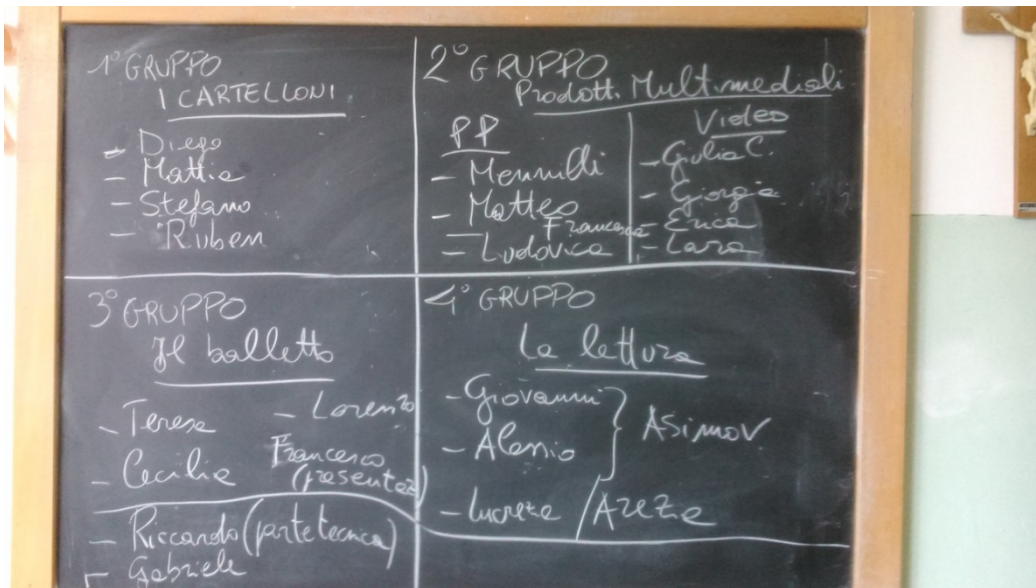 1° GRUPPO
I CARTELLONI
- Diego
- Mattia
- Stefano
- Ruben
2° GRUPPO
Prodotti Multimediali
PP
- Mennilli
- Matteo
Francesca
- Ludovica
Video
- Giulia C.
- Giorgia
- Erica
- Lara
3° GRUPPO
Il balletto
- Teresa - Lorenzo
- Cecilia Francesco
(presentaz)
- Riccardo (parte tecnica)
- Gabriele
4° GRUPPO
La lettura
- Giovanni
- Alessio } Asimov
- Lucrezia / Arezia